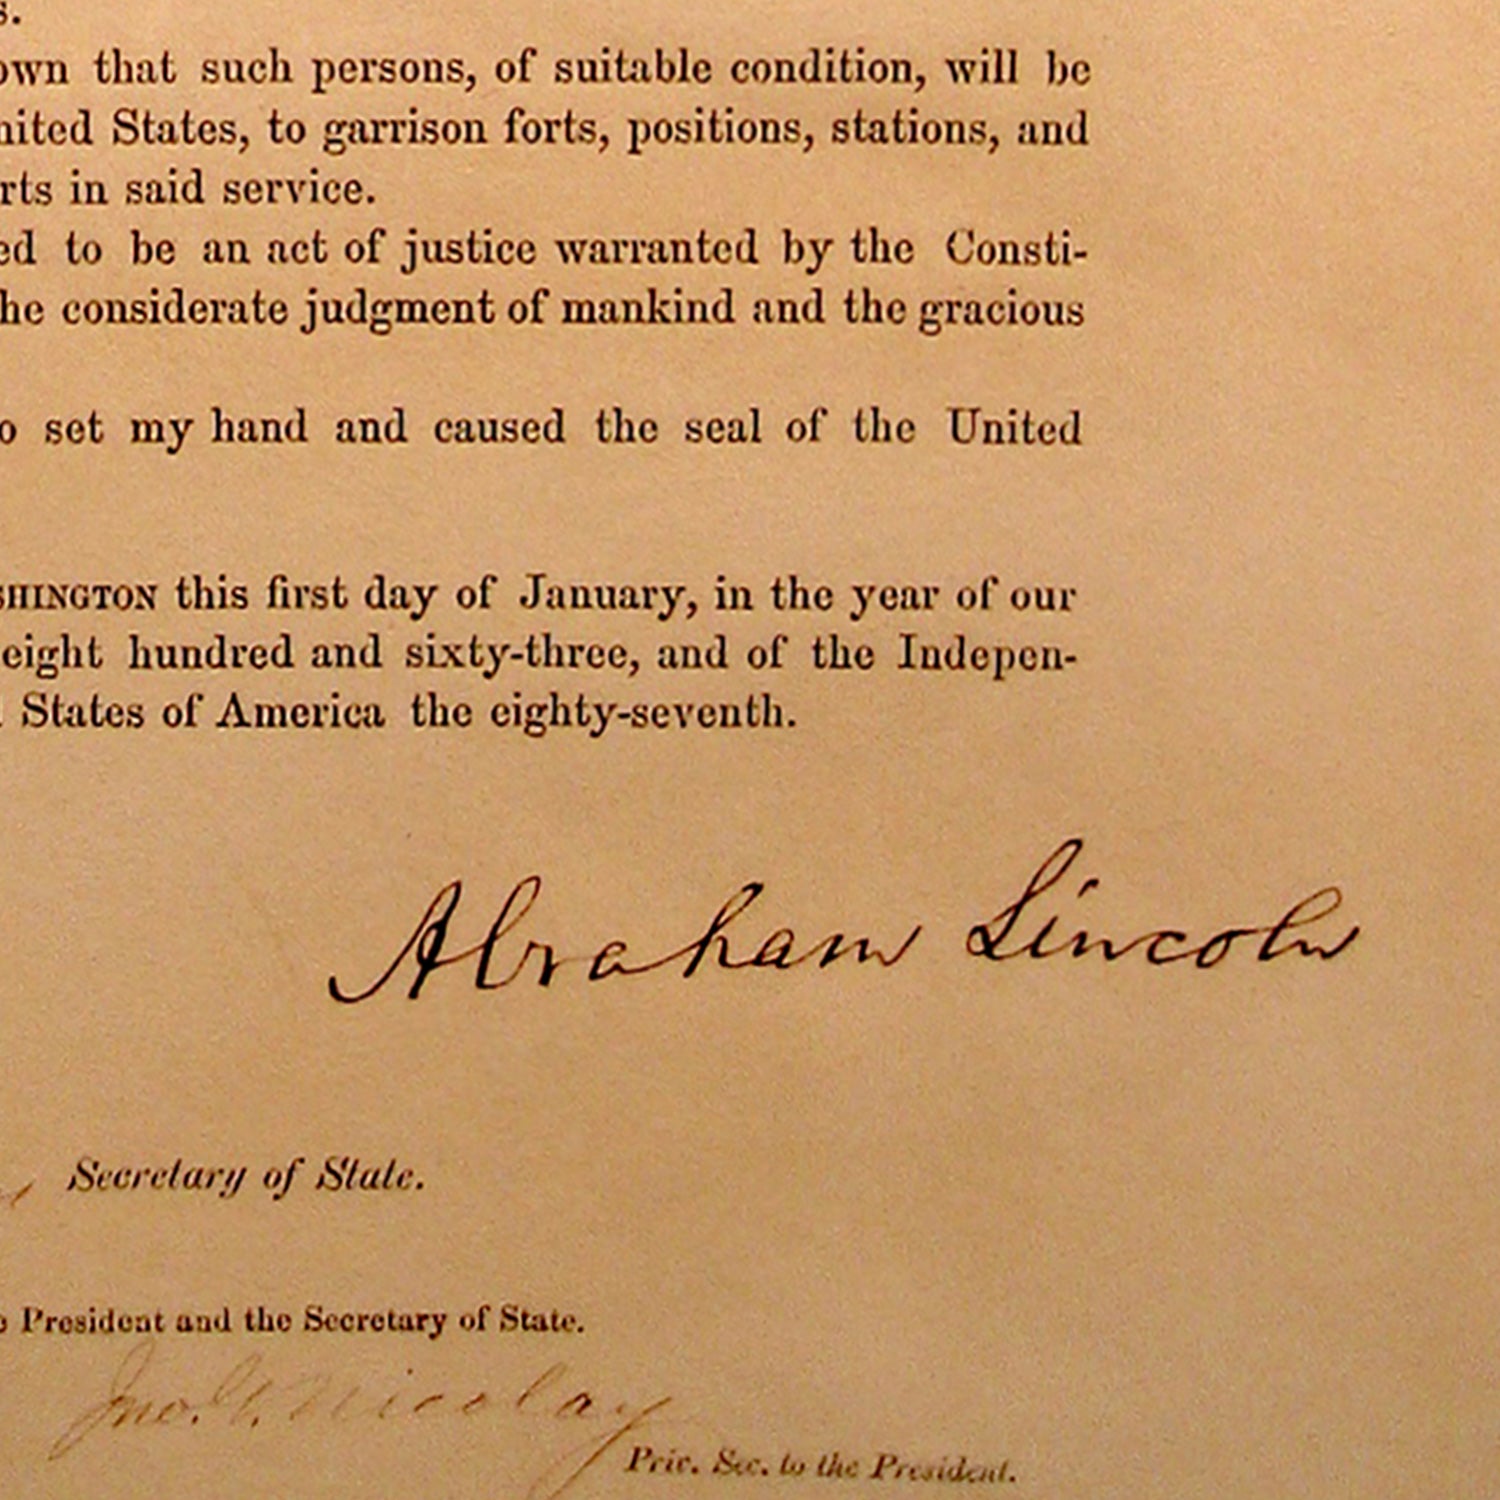 s.
own that such persons, of suitable condition, will be
nited States, to garrison forts, positions, stations, and
rts in said service.
ed to be an act of justice warranted by the Consti-
he considerate judgment of mankind and the gracious
o set my hand and caused the seal of the United
SHINGTON this first day of January, in the year of our
eight hundred and sixty-three, and of the Indepen-
States of America the eighty-seventh.
Abraham Lincoln
Secretary of State.
President and the Secretary of State.
Jno. G. Nicolay
Priv. Sec. to the President.